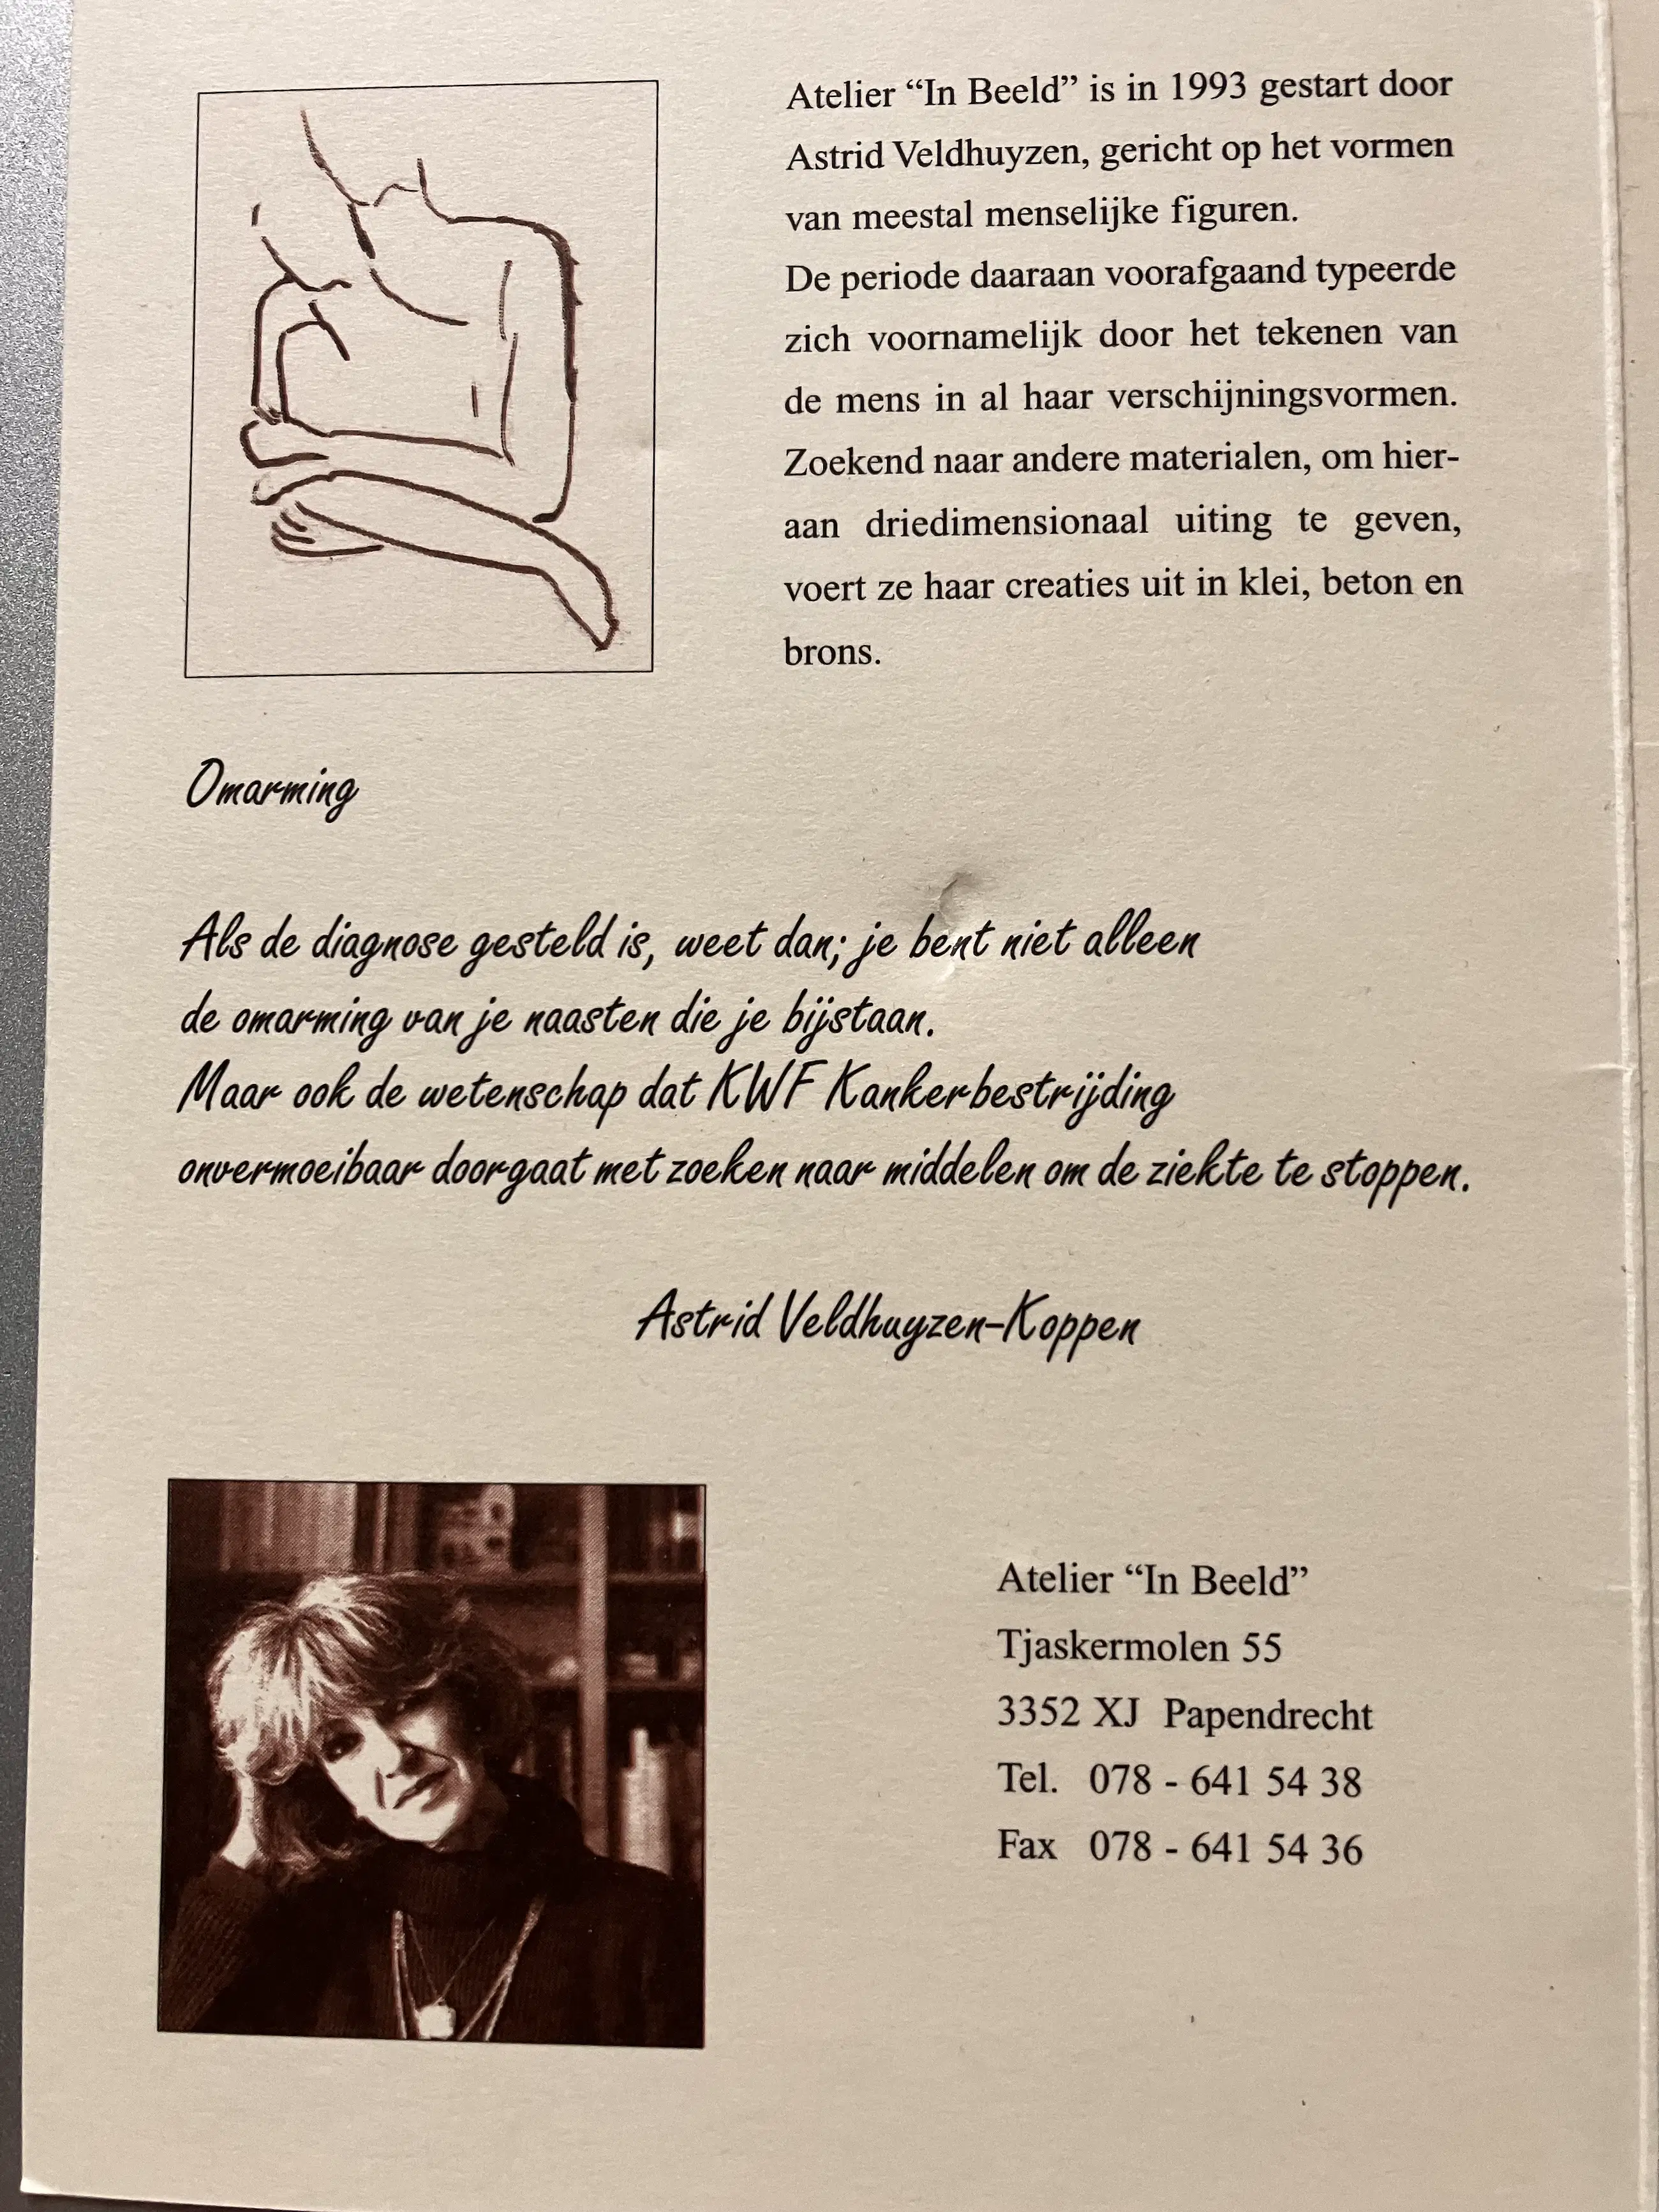 Atelier “In Beeld” is in 1993 gestart door
Astrid Veldhuyzen, gericht op het vormen
van meestal menselijke figuren.
De periode daaraan voorafgaand typeerde
zich voornamelijk door het tekenen van
de mens in al haar verschijningsvormen.
Zoekend naar andere materialen, om hier-
aan driedimensionaal uiting te geven,
voert ze haar creaties uit in klei, beton en
brons.
Omarming
Als de diagnose gesteld is, weet dan; je bent niet alleen
de omarming van je naasten die je bijstaan.
Maar ook de wetenschap dat KWF Kankerbestrijding
onvermoeibaar doorgaat met zoeken naar middelen om de ziekte te stoppen.
Astrid Veldhuyzen-Koppen
Atelier “In Beeld”
Tjaskermolen 55
3352 XJ Papendrecht
Tel. 078 - 641 54 38
Fax 078 - 641 54 36